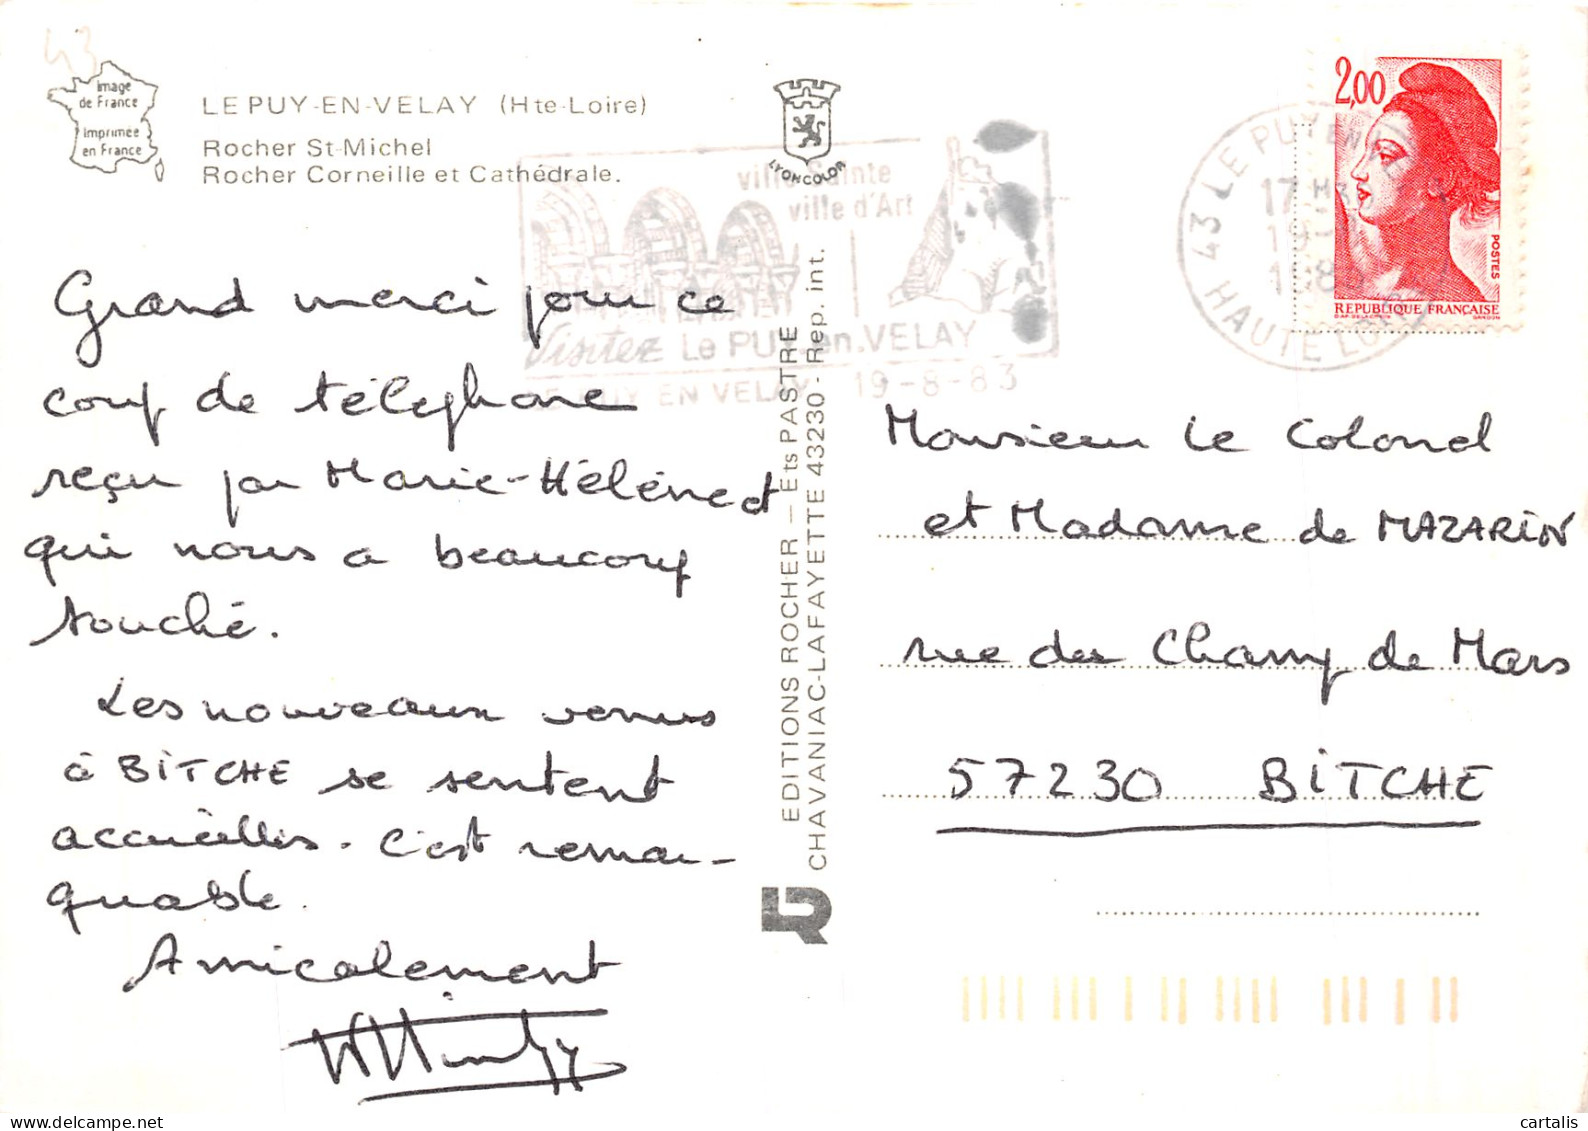 43
Image
de France
Imprimée
en France
LE PUY-EN-VELAY (Hte-Loire)
Rocher St-Michel
Rocher Corneille et Cathédrale.
LYONCOLOR
ville Sainte
ville d'Art
Visitez Le PUY.en.VELAY
LE PUY EN VELAY 19-8-83
43 LE PUY EN VELAY
17 H
19-
198
HAUTE LOIRE
2,00
POSTES
REPUBLIQUE FRANÇAISE
GANDON
Grand merci pour ce
coup de téléphone
reçu par Marie-Hélène et
qui nous a beaucoup
touché.
Les nouveaux venus
à BITCHE se sentent
accueillis. C'est remar-
quable.
Amicalement
EDITIONS ROCHER — Ets PASTRE
CHAVANIAC-LAFAYETTE 43230 - Rep. int.
LR
Monsieur le Colonel
et Madame de MAZARIN
rue du Champ de Mars
57230 BITCHE
cartalis